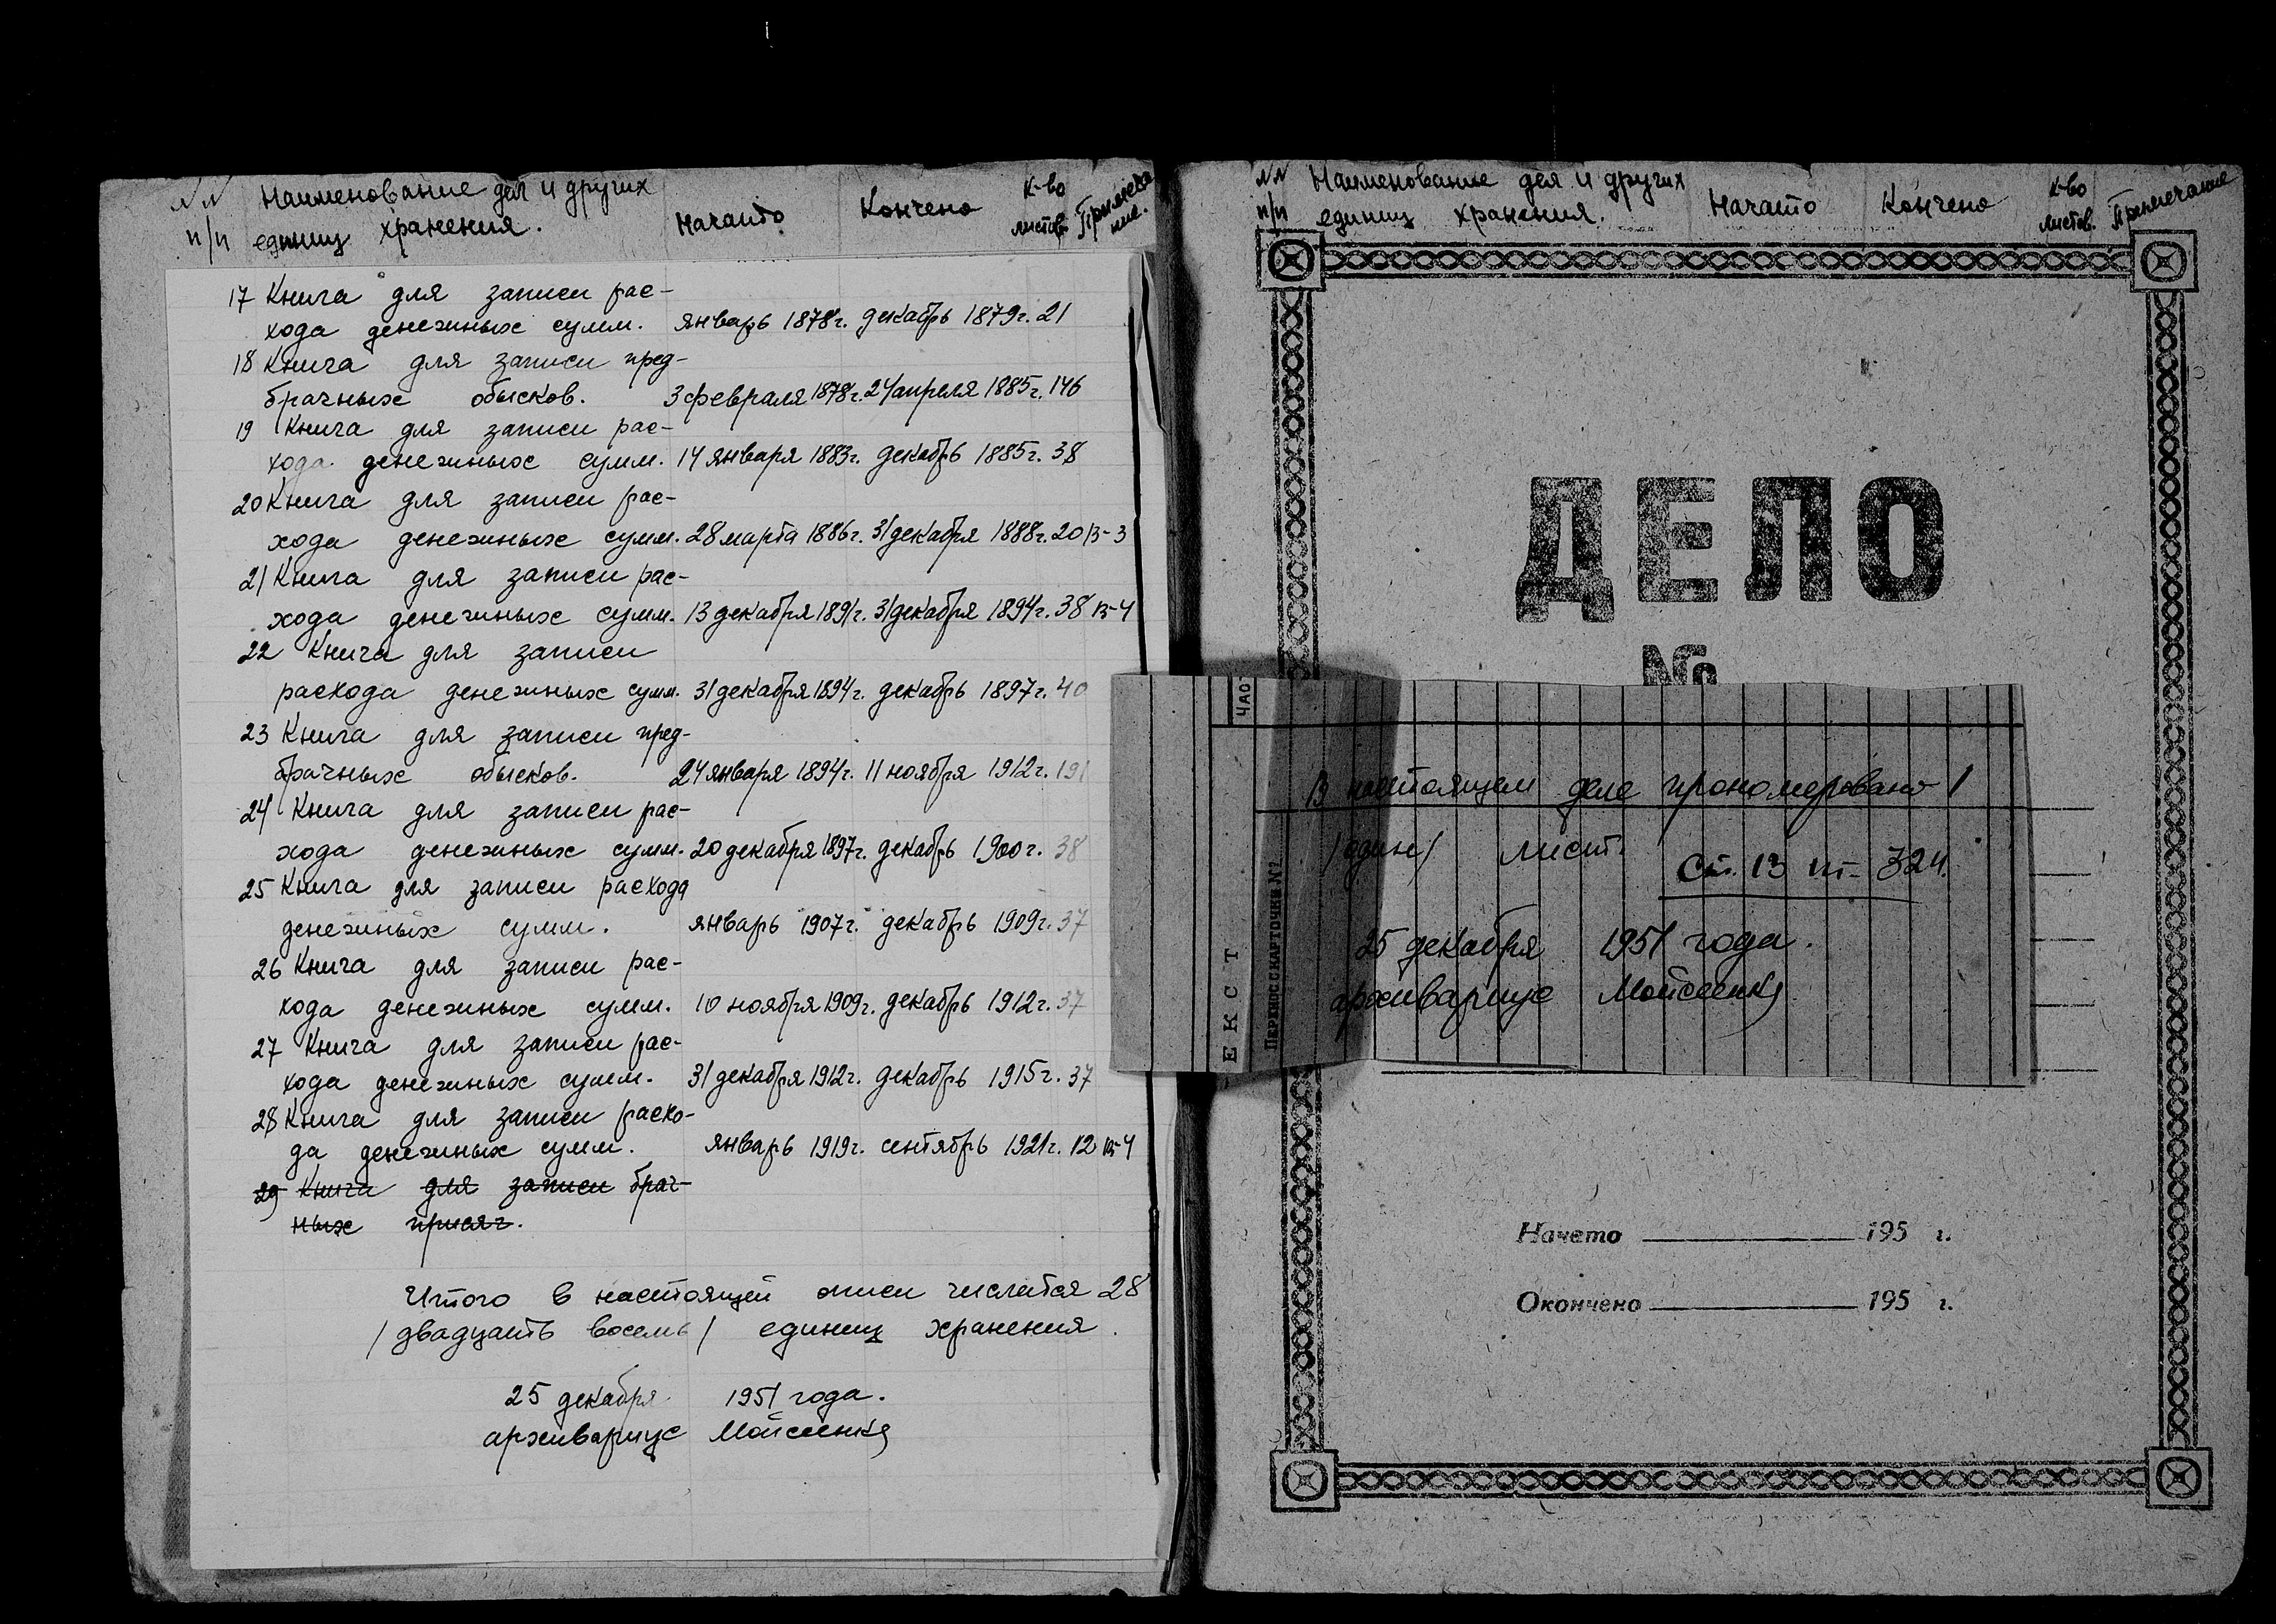 NN Наименование дел и других
п/п единиц хранения. Начато Кончено к-во листов Примечание.
17 Книга для записи рас-
хода денежных сумм. январь 1878г. декабрь 1879г. 21
18 Книга для записи пред-
брачных обысков. 3 февраля 1878г. 24 апреля 1885г. 146
19 Книга для записи рас-
хода денежных сумм. 14 января 1883г. декабрь 1885г. 38
20 Книга для записи рас-
хода денежных сумм. 28 марта 1886г. 31 декабря 1888г. 20 В-3
21 Книга для записи рас-
хода денежных сумм. 13 декабря 1891г. 31 декабря 1894г. 38 В-4
22 Книга для записи
расхода денежных сумм. 31 декабря 1894г. декабрь 1897г. 40
23 Книга для записи пред-
брачных обысков. 24 января 1894г. 11 ноября 1912г. 191
24 Книга для записи рас-
хода денежных сумм. 20 декабря 1897г. декабрь 1900г. 38
25 Книга для записи расхода
денежных сумм. январь 1907г. декабрь 1909г. 37
26 Книга для записи рас-
хода денежных сумм. 10 ноября 1909г. декабрь 1912г. 37
27 Книга для записи рас-
хода денежных сумм. 31 декабря 1912г. декабрь 1915г. 37
28 Книга для записи расхо-
да денежных сумм. январь 1919г. сентябрь 1921г. 12 В-4
29 Книга для записи брач-
ных присяг.
Итого в настоящей описи числится 28
/двадцать восемь/ единиц хранения.
25 декабря 1951 года.
архивариус Мойсеенко
NN Наименование дел и других
п/п единиц хранения. Начато Кончено к-во листов. Примечание
ДЕЛО
№
ЧАСТ
ЕКСТ
ПЕРЕНОС С КАРТОЧКИ №2
В настоящем деле прономеровано 1
/один/ лист.
Ст. 13 пт- 324.
25 декабря 1951 года.
архивариус Мойсеенко
Начето 195 г.
Окончено 195 г.